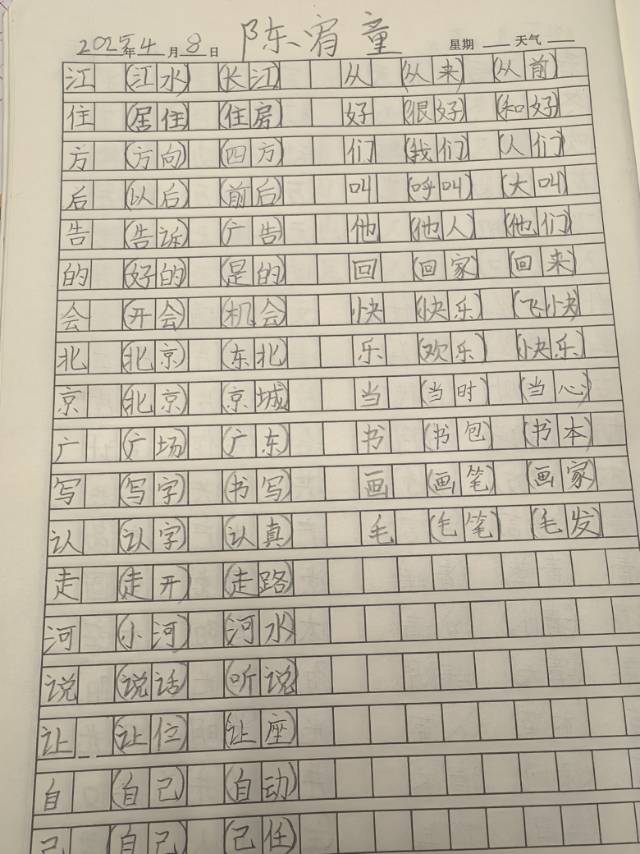 2025年4月8日 陈宥童 星期 天气
江 (江水) (长江) 从 (从来) (从前)
住 (居住) (住房) 好 (很好) (和好)
方 (方向) (四方) 们 (我们) (人们)
后 (以后) (前后) 叫 (呼叫) (大叫)
告 (告诉) (广告) 他 (他人) (他们)
的 (好的) (是的) 回 (回家) (回来)
会 (开会) (机会) 快 (快乐) (飞快)
北 (北京) (东北) 乐 (欢乐) (快乐)
京 (北京) (京城) 当 (当时) (当心)
广 (广场) (广东) 书 (书包) (书本)
写 (写字) (书写) 画 (画笔) (画家)
认 (认字) (认真) 毛 (毛笔) (毛发)
走 (走开) (走路)
河 (小河) (河水)
说 (说话) (听说)
让 (让位) (让座)
自 (自己) (自动)
己 (自己) (己任)